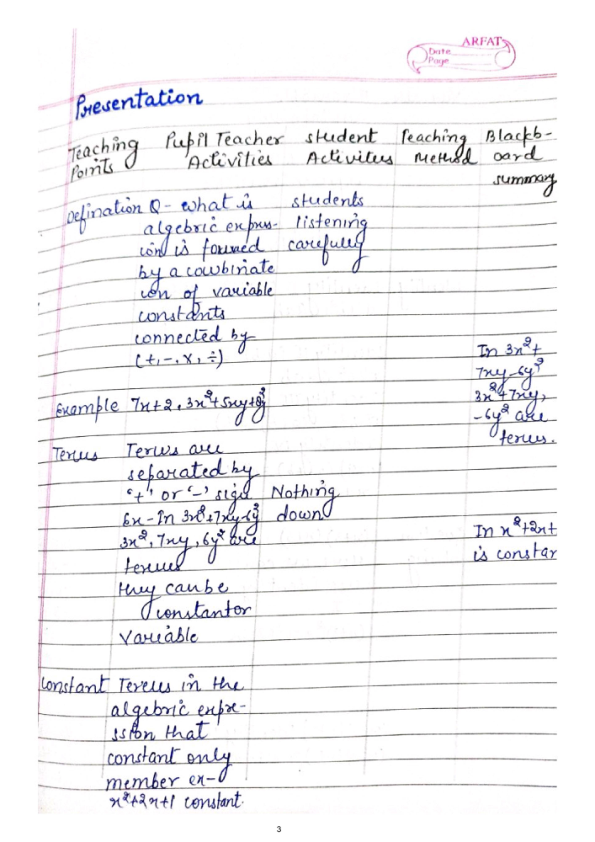 ARFAT
Date
Page
Presentation
Teaching Points
Pupil Teacher Activities
student Activities
Teaching Method
Blackboard summary
Defination Q- what is
algebric expres-
ion is formed
by a combinate
ion of variable
constants
connected by
(+, -, x, ÷)
students
listening
carefully
Example 7x+2, 3x²+5xy+
In 3x²+
7xy-6y²
3x²+7xy,
-6y² are
terms.
Terms Terms are
separated by
'+' or '-' sign
Ex- In 3x²+7xy-6y²
3x², 7xy, 6y² are
terms
they can be
constant or
Variable
Nothing
down
In x²+2x+
is constar
Constant Terms in the
algebric expre-
ssion that
constant only
member ex-
x²+2x+1 constant.
3